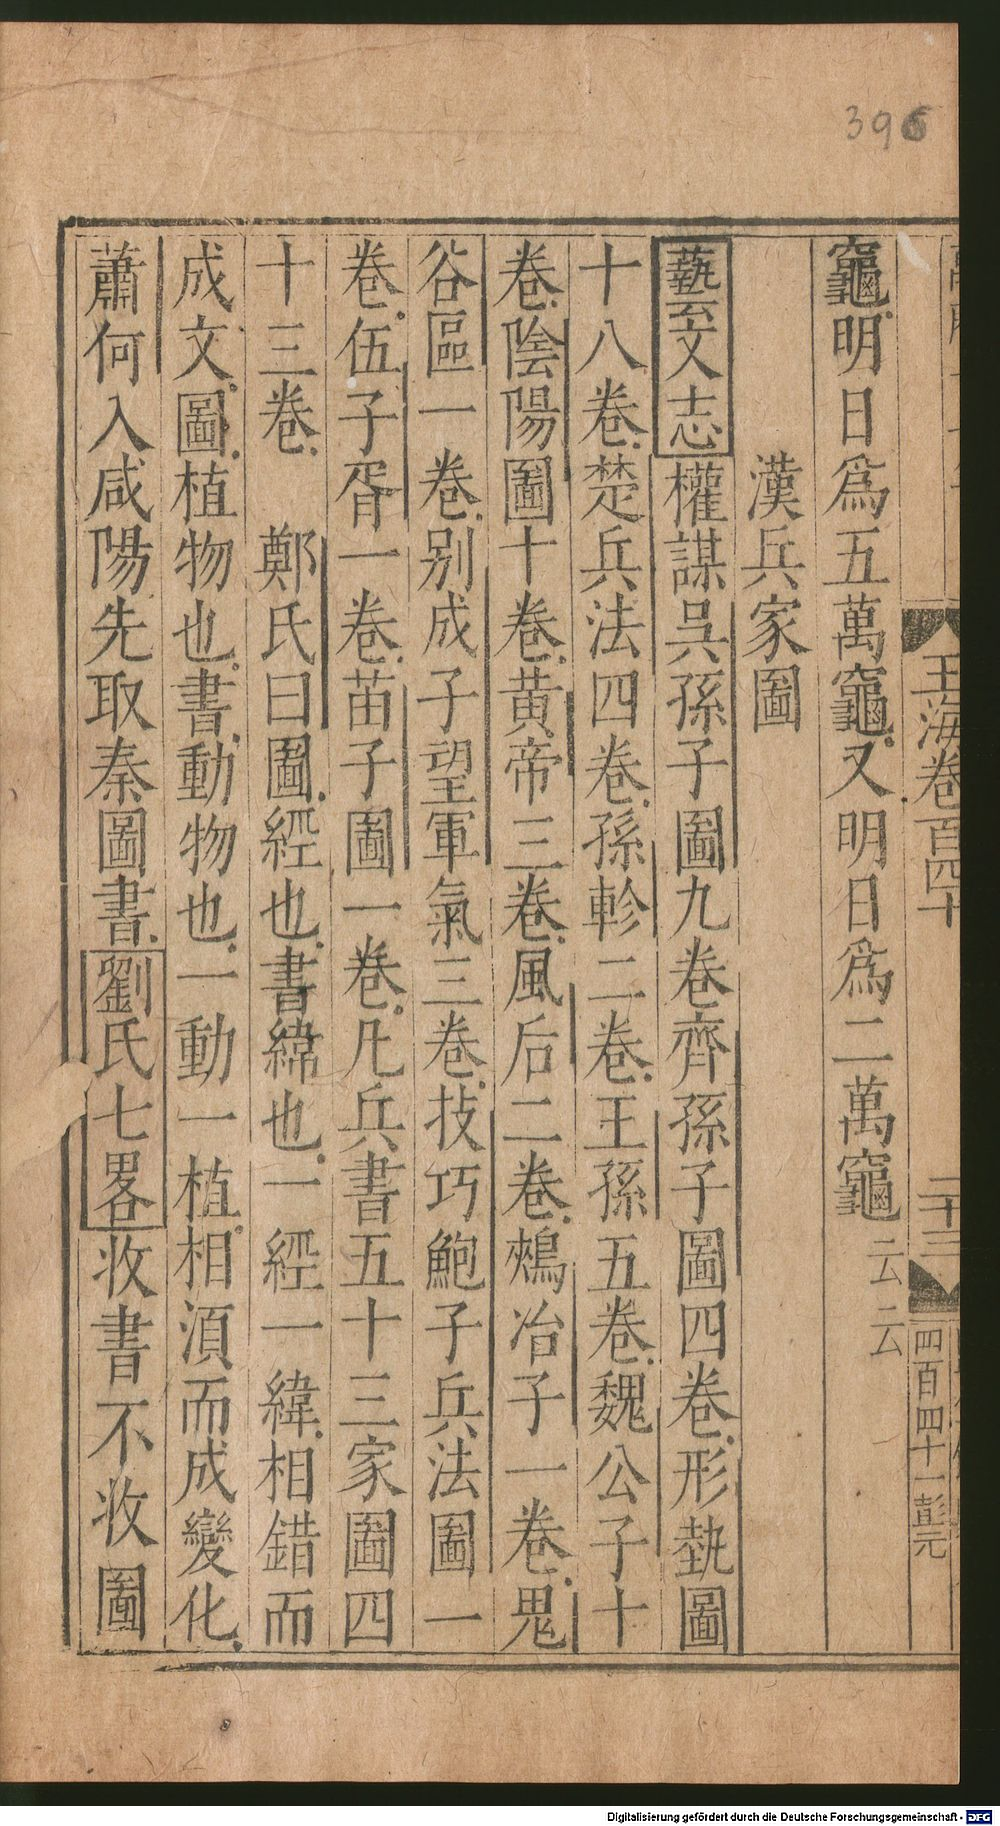 396
玉海卷百四十
二十三
四百四十一彭元
竈明日爲五萬竈又明日爲二萬竈云云
漢兵家圖
藝文志權謀吳孫子圖九卷齊孫子圖四卷形埶圖
十八卷楚兵法四卷孫軫二卷王孫五卷魏公子十
卷陰陽圖十卷黃帝三卷風后二卷鵊冶子一卷鬼
谷區一卷別成子望軍氣三卷技巧鮑子兵法圖一
卷伍子胥一卷苗子圖一卷凡兵書五十三家圖四
十三卷 鄭氏曰圖經也書緯也一經一緯相錯而
成文圖植物也書動物也一動一植相湏而成變化
蕭何入咸陽先取秦圖書劉氏七畧收書不收圖
Digitalisierung gefördert durch die Deutsche Forschungsgemeinschaft - DFG